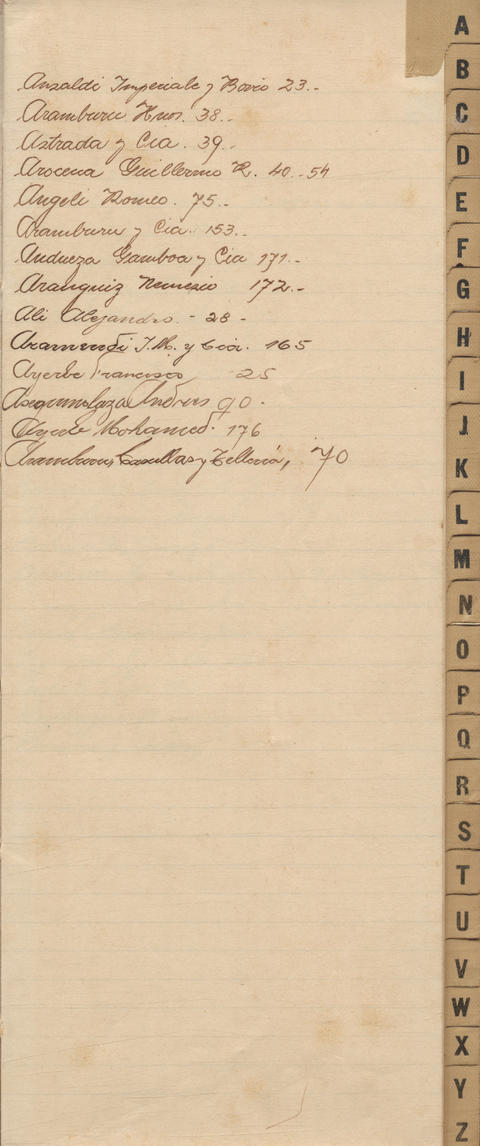 Ansaldi Imperiale y Bovio 23.-
Aramburu Hnos. 38.-
Astrada y Cia. 39.-
Arocena Guillermo R. 40.-54
Angeli Romeo. 75.-
Aramburu y Cia. 153.-
Andueza Gamboa y Cia 171.-
Aranguiz Nemesio 172.-
Ali Alejandro. - 28 -
Aramendi J.M. y Cia. 165
Ayerbe Francisco 25
Andres 90.
Mohamed. 176
Aramburu, Casellas y Telleria, 70
A
B
C
D
E
F
G
H
I
J
K
L
M
N
O
P
Q
R
S
T
U
V
W
X
Y
Z